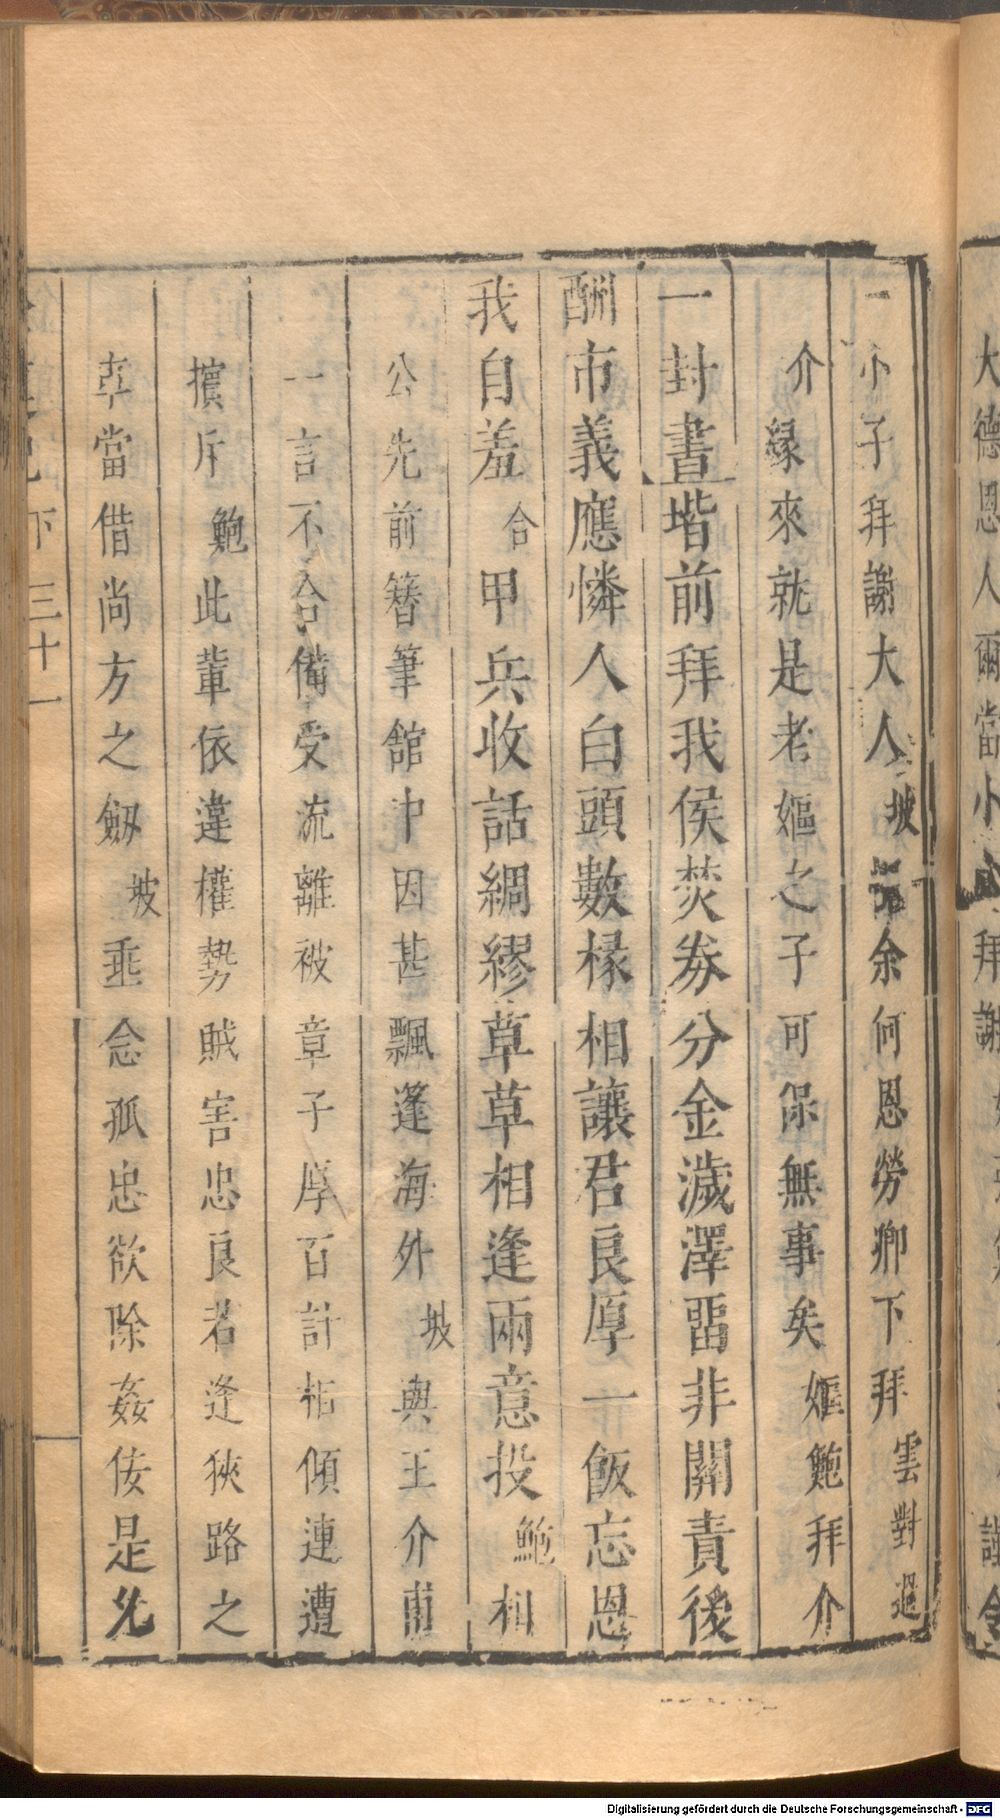 大德恩人爾當小
拜謝
小子拜謝大人坡余何恩勞卿下拜雲對過
介緣來就是老嫗之子可保無事矣嫗鮑拜介
一封晝堦前拜我侯焚券分金濊澤畱非關責後
酬市義應憐人白頭數椽相讓君良厚一飯忘恩
我自羞合甲兵收話綢繆草草相逢兩意投鮑相
公先前簪筆舘中因甚飄蓬海外坡與王介甫
一言不合備受流離被章子厚百計相傾連遭
擯斥鮑此輩依違權勢賊害忠良若逢狹路之
辜當借尚方之劔坡垂念孤忠欲除姦佞是先
下 三十一
Digitalisierung gefördert durch die Deutsche Forschungsgemeinschaft - DFG